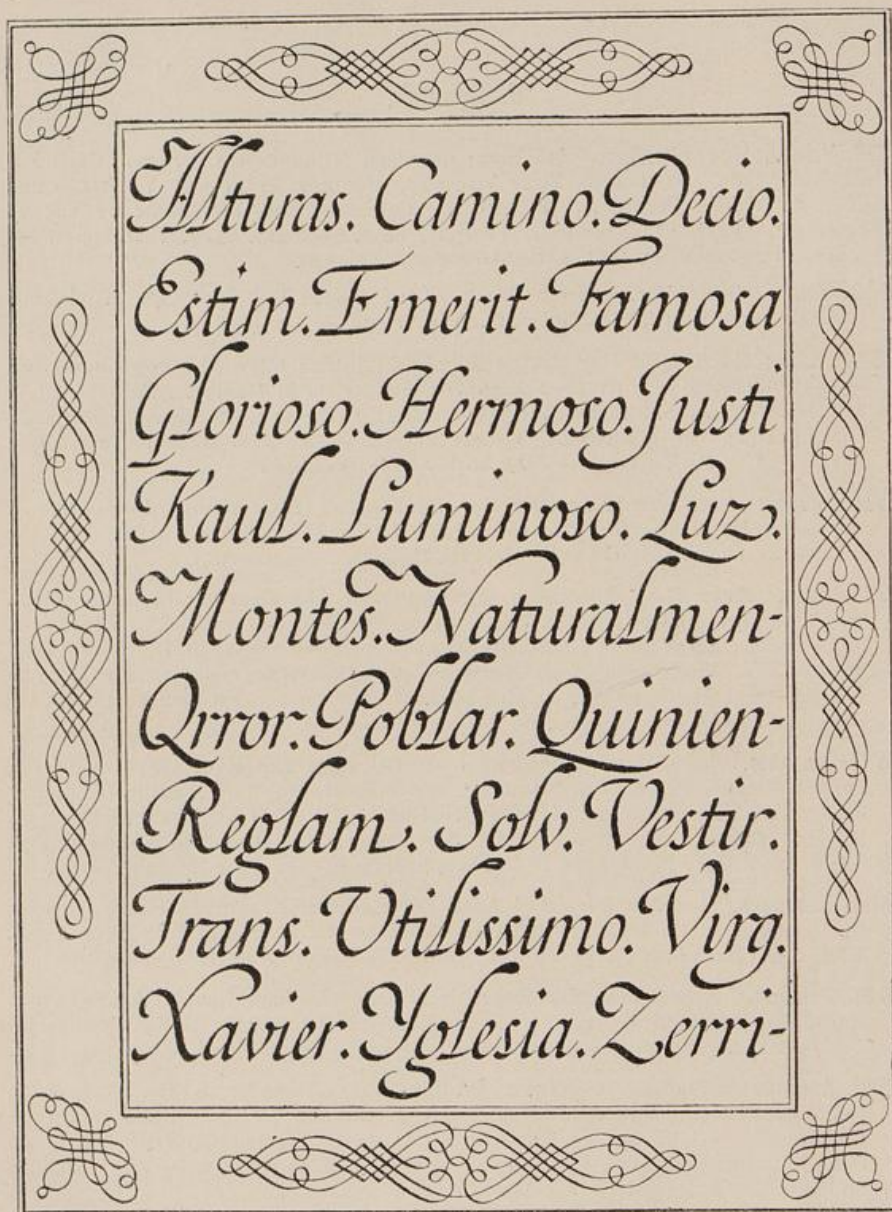 Alturas. Camino. Decio.
Estim. Emerit. Famosa
Glorioso. Hermoso. Justi
Kaul. Luminoso. Luz.
Montes. Naturalmen-
Qrror. Poblar. Quinien-
Reglam. Solv. Vestir.
Trans. Utilissimo. Virg.
Xavier. Yglesia. Zerri-